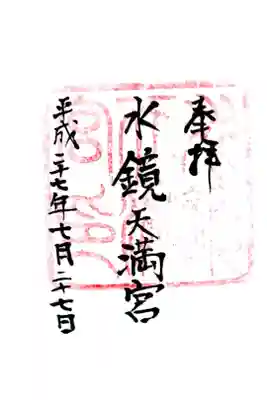 奉拝
水鏡天満宮
平成二十七年七月二十七日